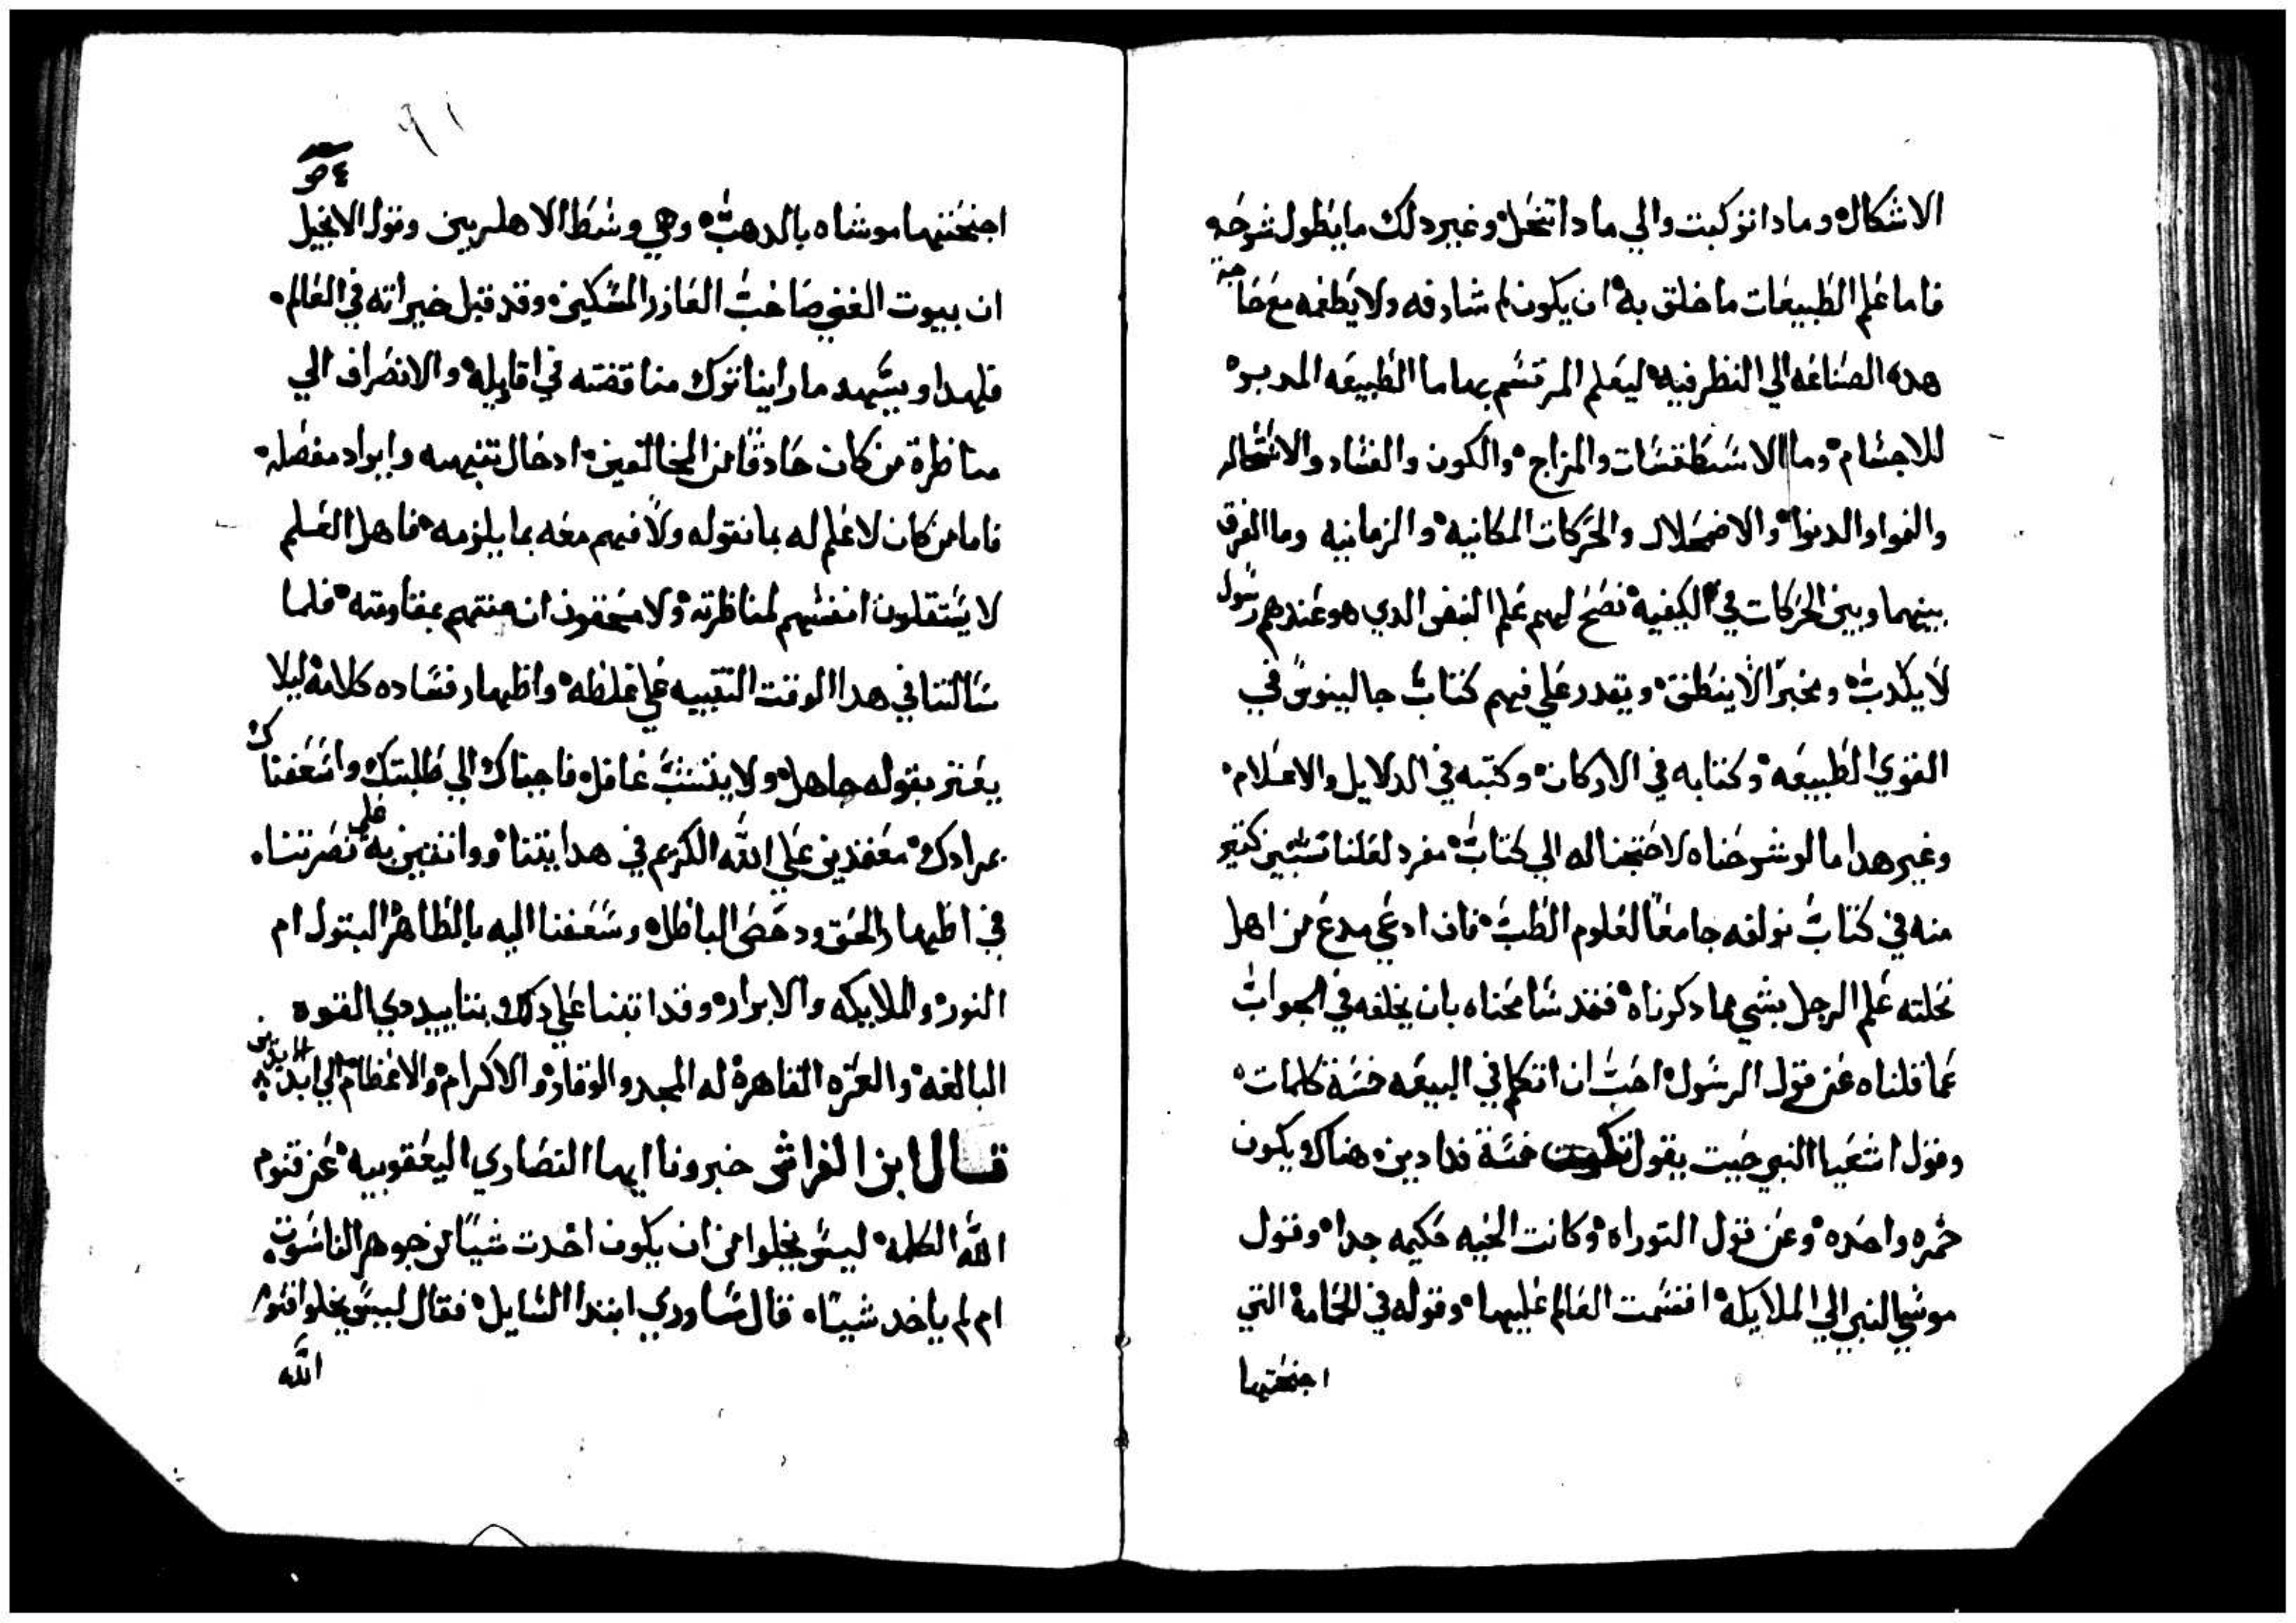 الاشكال وماداتركبت والي مادا تنحل وغير دلك مايطول شرحه
فاما علم الطبيعات ماخلق به ان يكون لم شارفه ولا يطعمه مع حاجته
هده الصناعه الي النظر فيه ليعلم المرتسم بها ما الطبيعه المدبره
للاجسام وما الاسطقسات والمزاج والكون والفساد والاستحاله
والنموا والدنوا والاضمحلال والحركات المكانيه والزمانيه وما الفرق
بينهما وبين الحركات في الكيفيه نصح لهم علم النبض الدي هو عندهم رسول
لا يكدب ومخبرا لا ينطق ويقدر علي فهم كتاب جالينوس في
القوي الطبيعه وكتابه في الاركان وكتبه في الدلايل والاعلام
وغير هدا مالو شرحناه لاحتجنا له الي كتاب مفرد لعلنا تبين كثير
منه في كتاب نولفه جامعا لعلوم الطب فان ادعي مدع من اهل
نحلته علم الرجل بشي مما دكرناه فقد سامحناه بان يخلفه في الجواب
عما قلناه عن قول الرسول احب ان اتكلم في البيعه خمسة كلمات
وقول اشعيا النبي حيت يقول تكون خمسة فدادين هناك يكون
خمره واحده وعن قول التوراه وكانت الحيه حكيمه جدا وقول
موسي النبي الي الملايكه اقتسمت العالم عليها وقوله في الحمامة التي
اجنحتها
٩١
اجنحتها موشاه بالدهب وهي وسط الاهلربين وقول الانجيل
ان بيوت الغني صاحب العازر المسكين وقد قبل خيراته في العالم
فلهدا وبشبهه ماراينا ترك مناقضته في اقاويله والانصراف الي
مناظرة من كان حادقا من المخالفين ادخال تنبيهه وايراد مفضله
فاما من كان لا علم له بما نقوله ولا فهم معه بما يلزمه فاهل العلم
لا يستقلون انفسهم لمناظرته ولا يتحققون ان همتهم بمقاومته فلما
سالتنا في هدا الوقت التنبيه علي غلطه واظهار فساده كلامه ليلا
يغتر بقوله جاهل ولا يتنبت غافل فاجبناك الي طلبتك واسعفناك
بمرادك معتمدين علي الله الكريم في هدايتنا وواثقين به علي نصرتنا
في اظهار الحق ودحض الباطل وشفعنا اليه بالطاهره البتول ام
النور والملايكه والابرار وقد اتبنا علي دلك بتاييد دي القوه
البالغه والعزه القاهرة له المجد والوقار والاكرام والاعظام الي ابد الابدين
قال ابن الفراش خبرونا ايها النصاري اليعقوبيه عن قنوم
الله الكلمه ليس يخلوا من ان يكون اخدت شيا من جوهر الناسوت
ام لم ياخد شيا قال ساوري ابتدا السايل فقال ليس يخلوا قنوم
الله